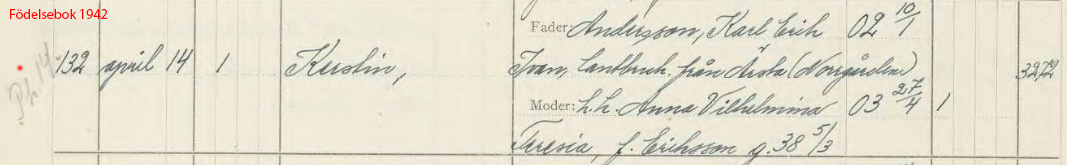 Födelsebok 1942
Fader: Andersson, Karl Erik 02 10/1
132 april 14 1 Kerstin, Ivan, lantbruk. från Årsta (Norrgården) 3272
Moder: h.h. Anna Vilhelmina 03 27/4 1
Teresia, f. Eriksson g. 38 5/3